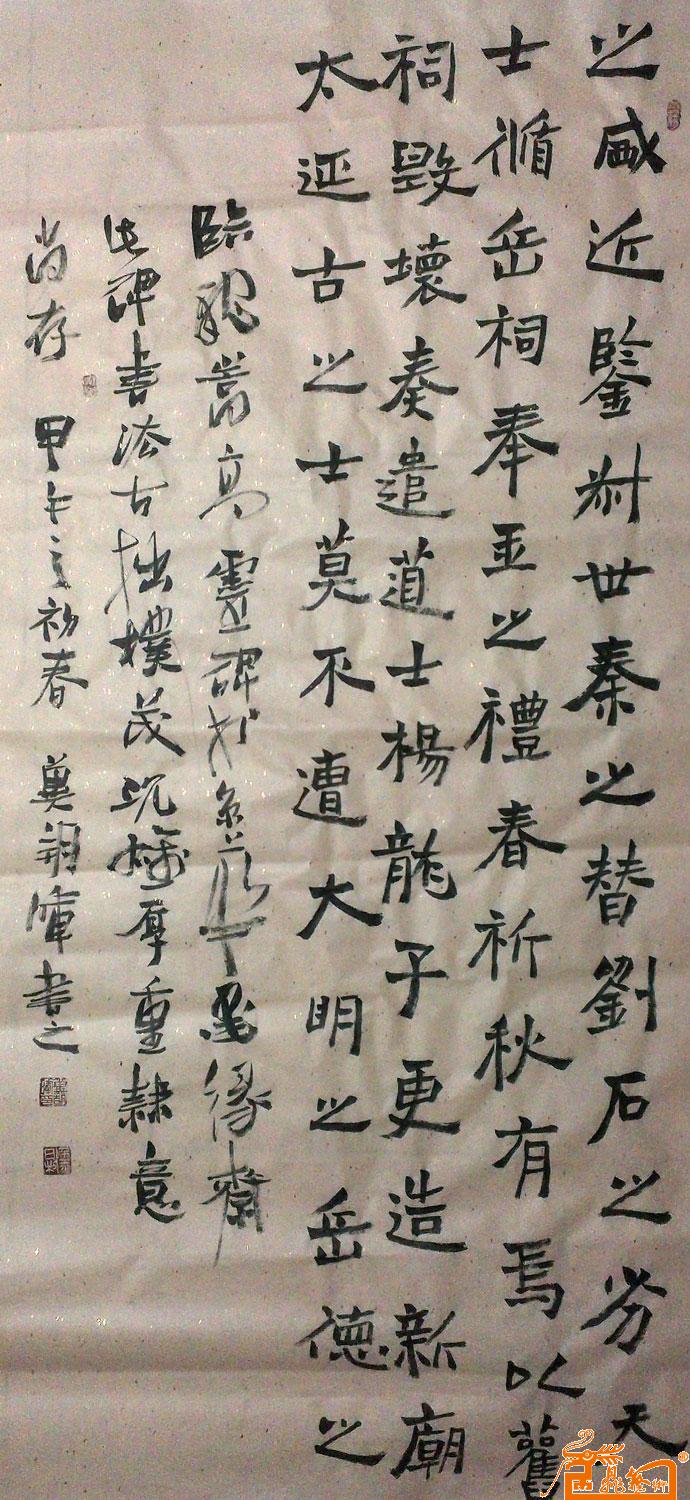 之盛近鑒斯世秦之替劉石之劣天
士脩岳祠奉玉之禮春祈秋有焉以舊
祠毀壞奏遣道士楊龍子更造新廟
太延古之士莫不遭大明之岳德之
臨嵩高靈碑於京下墨緣齋
此碑書法古拙樸茂沉雄厚重隸意
尚存 甲午之初春 莫朝暉書之